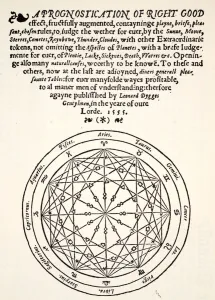 A PROGNOSTICATION OF RIGHT GOOD
effect, fruictfully augmented, contayninge playne, briefe, plea
sant, chosen rules, to iudge the wether for euer, by the Sunne, Moone,
Sterres, Cometes, Raynbow, Thunder, Cloudes, with other Extraordinarie
tokens, not omitting the Aspectes of Planetes, with a brefe Iudge-
mente for euer, of Plentie, Lacke, Sickenes, Death, Warres &c. Openin-
ge also many naturall causes, woorthy to be knowē. To these and
others, now at the last are adioyned, diuers generall plea-
saunte Tables: for euer manyfolde wayes profitable,
to al maner men of vnderstanding: therfore
agayne publisshed by Leonard Dygges
Gentylman, in the yeare of oure
Lorde. 1555.
Aries.
Pisces.
Taurus
Aquarius
Cancer
Leo
Libra.
Scorpius